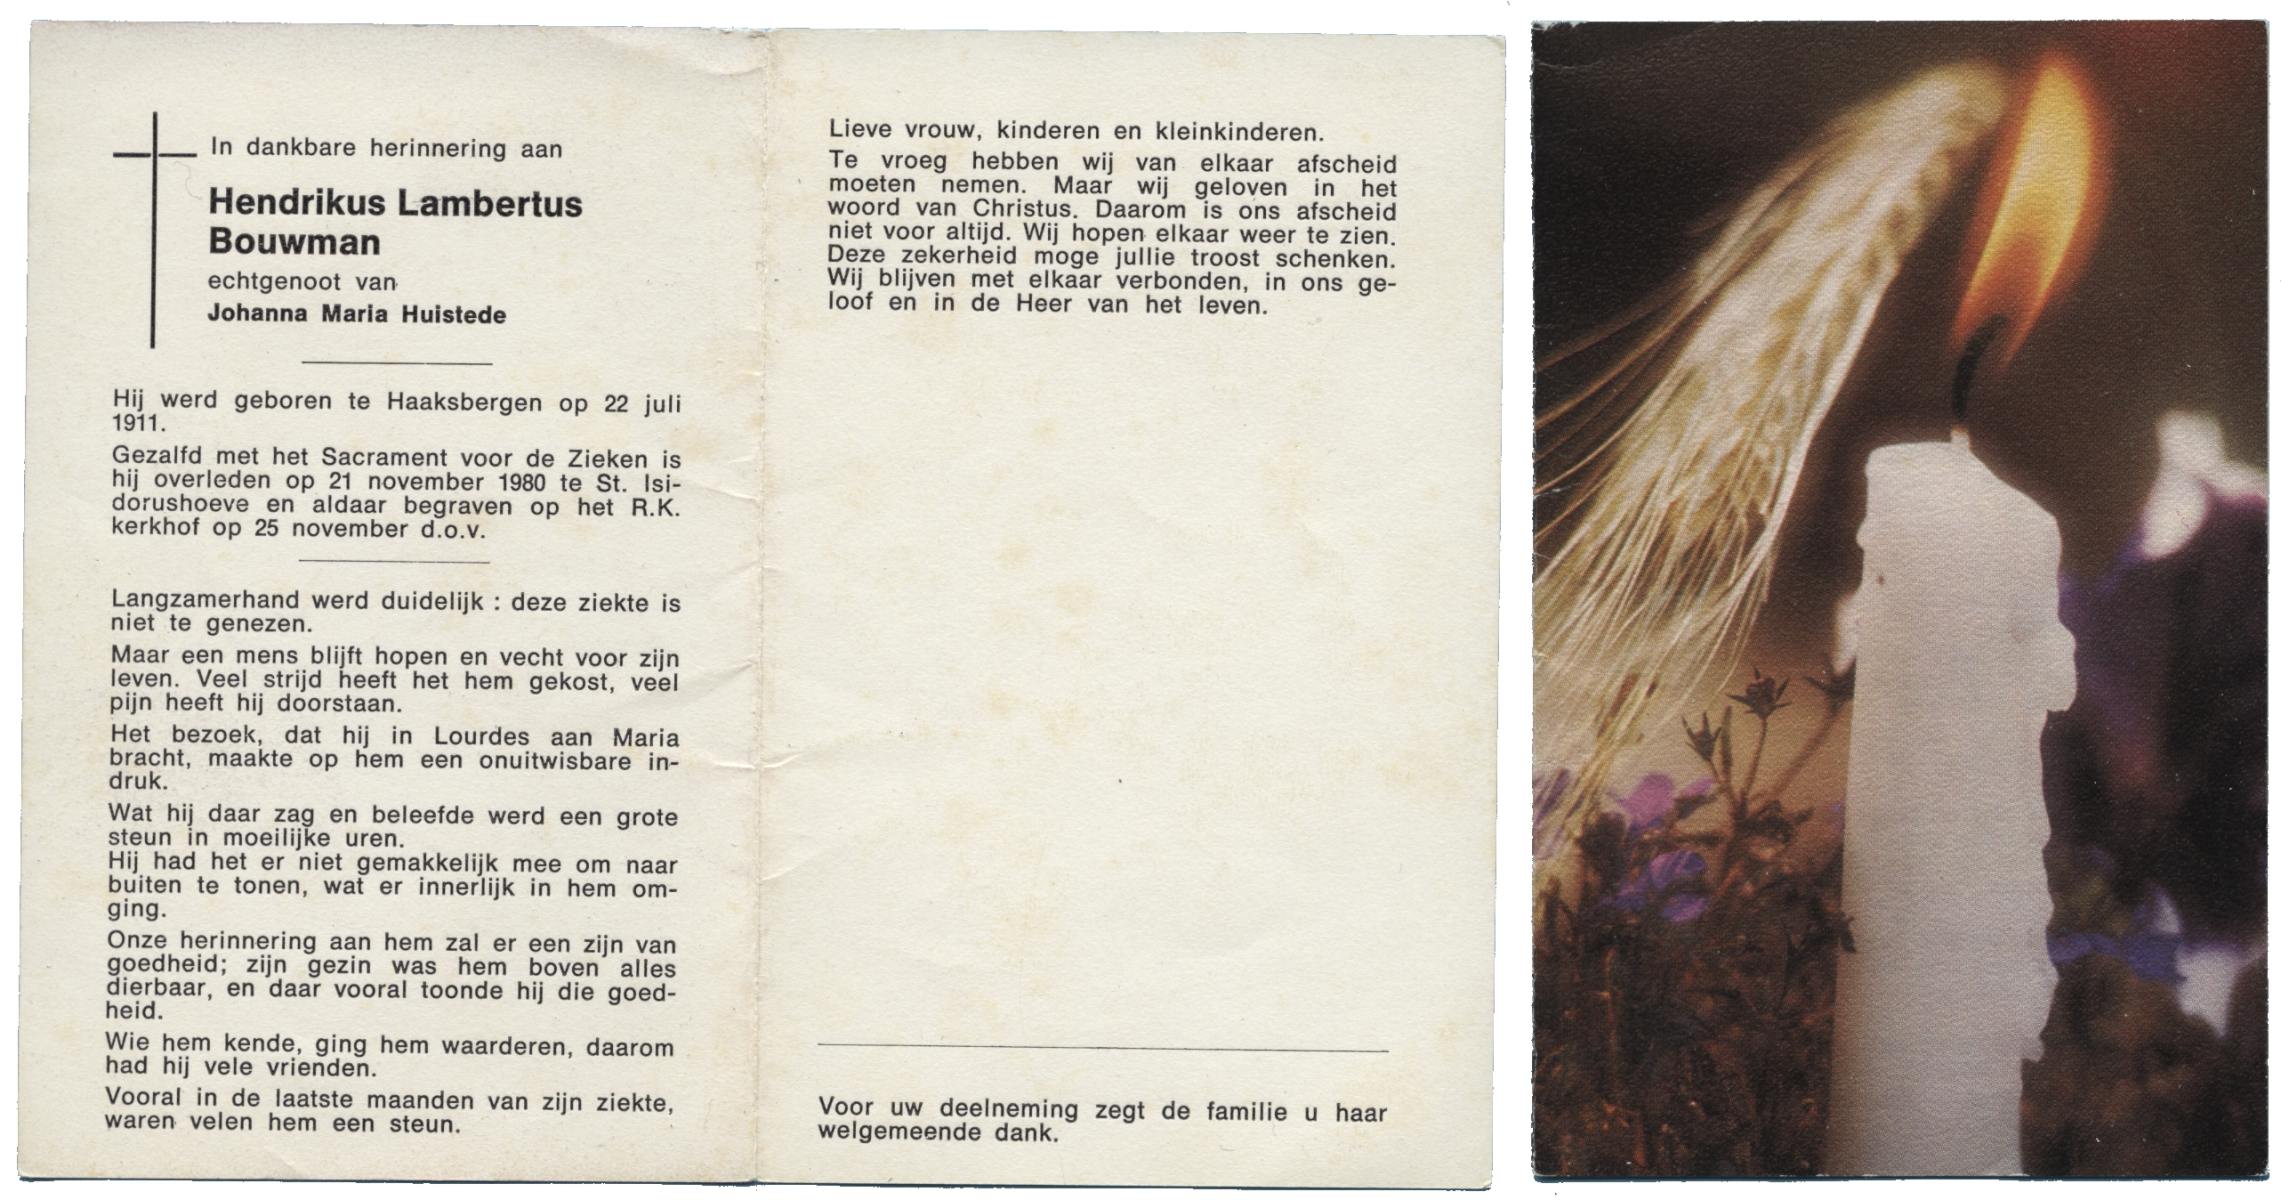 In dankbare herinnering aan
Hendrikus Lambertus
Bouwman
echtgenoot van
Johanna Maria Huistede
Hij werd geboren te Haaksbergen op 22 juli
1911.
Gezalfd met het Sacrament voor de Zieken is
hij overleden op 21 november 1980 te St. Isi-
dorushoeve en aldaar begraven op het R.K.
kerkhof op 25 november d.o.v.
Langzamerhand werd duidelijk : deze ziekte is
niet te genezen.
Maar een mens blijft hopen en vecht voor zijn
leven. Veel strijd heeft het hem gekost, veel
pijn heeft hij doorstaan.
Het bezoek, dat hij in Lourdes aan Maria
bracht, maakte op hem een onuitwisbare in-
druk.
Wat hij daar zag en beleefde werd een grote
steun in moeilijke uren.
Hij had het er niet gemakkelijk mee om naar
buiten te tonen, wat er innerlijk in hem om-
ging.
Onze herinnering aan hem zal er een zijn van
goedheid; zijn gezin was hem boven alles
dierbaar, en daar vooral toonde hij die goed-
heid.
Wie hem kende, ging hem waarderen, daarom
had hij vele vrienden.
Vooral in de laatste maanden van zijn ziekte,
waren velen hem een steun.
Lieve vrouw, kinderen en kleinkinderen.
Te vroeg hebben wij van elkaar afscheid
moeten nemen. Maar wij geloven in het
woord van Christus. Daarom is ons afscheid
niet voor altijd. Wij hopen elkaar weer te zien.
Deze zekerheid moge jullie troost schenken.
Wij blijven met elkaar verbonden, in ons ge-
loof en in de Heer van het leven.
Voor uw deelneming zegt de familie u haar
welgemeende dank.